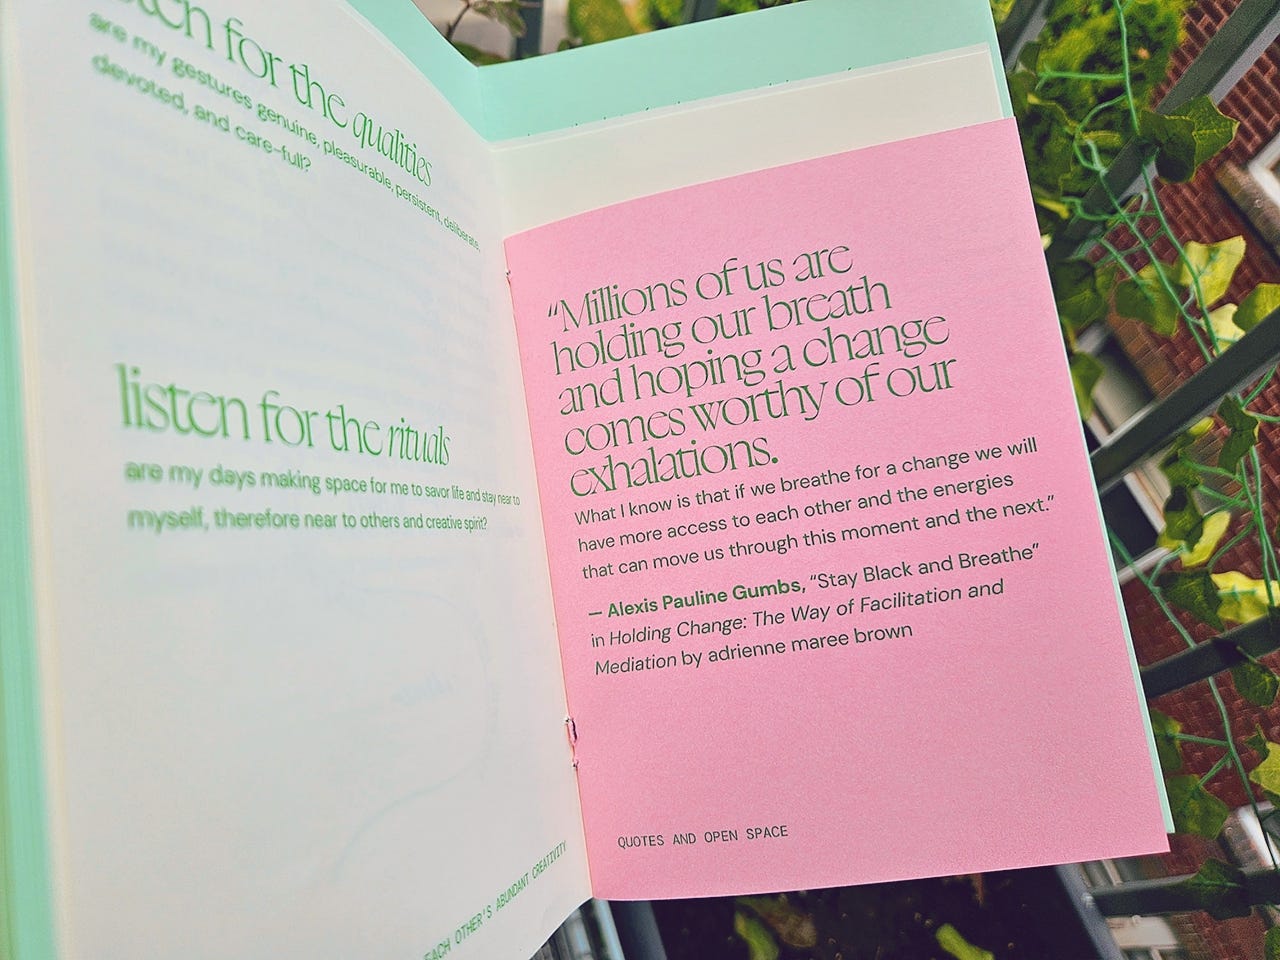 listen for the qualities
are my gestures genuine, pleasurable, persistent, deliberate,
devoted, and care-full?
listen for the rituals
are my days making space for me to savor life and stay near to
myself, therefore near to others and creative spirit?
EACH OTHER'S ABUNDANT CREATIVITY
“Millions of us are
holding our breath
and hoping a change
comes worthy of our
exhalations.
What I know is that if we breathe for a change we will
have more access to each other and the energies
that can move us through this moment and the next.”
— Alexis Pauline Gumbs, “Stay Black and Breathe”
in Holding Change: The Way of Facilitation and
Mediation by adrienne maree brown
QUOTES AND OPEN SPACE